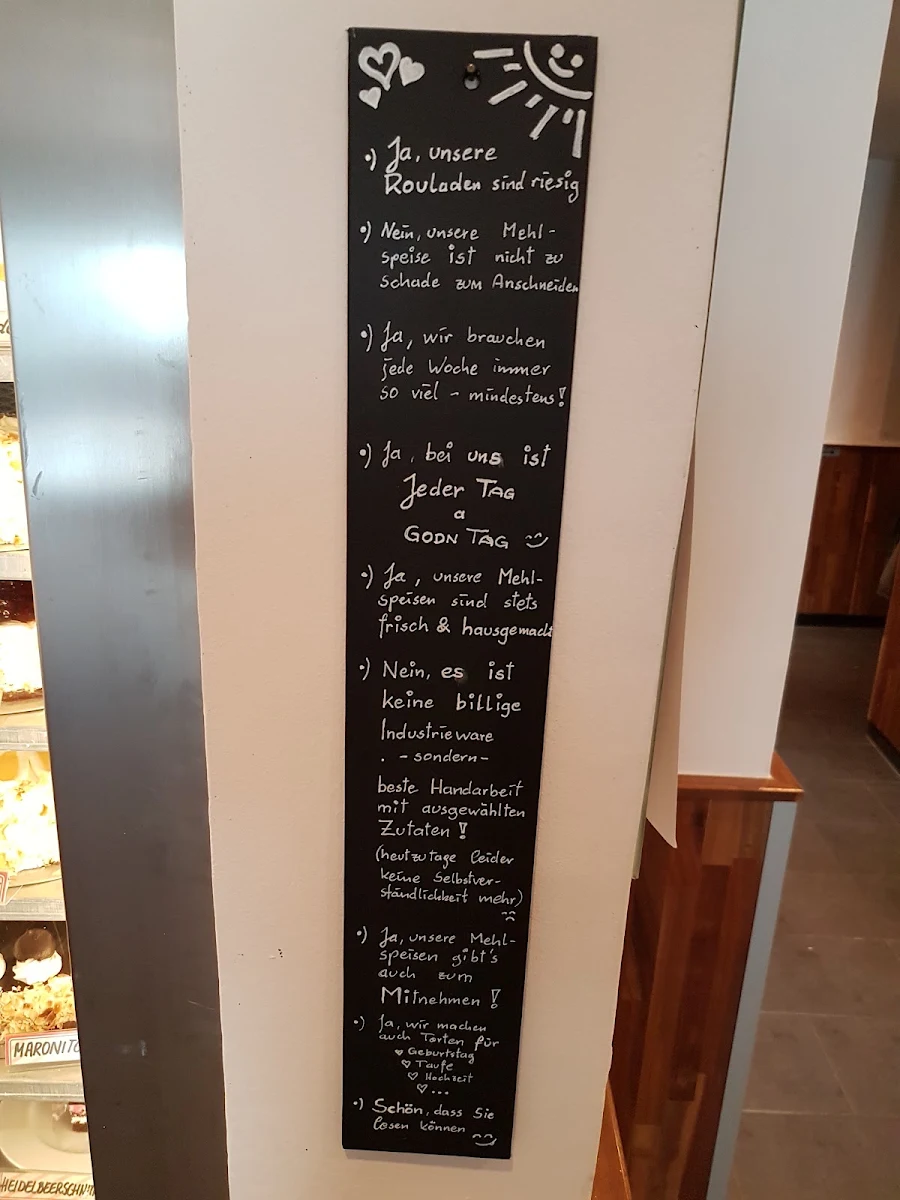 •) Ja, unsere
Rouladen sind riesig
•) Nein, unsere Mehl-
speise ist nicht zu
schade zum Anschneiden
•) Ja, wir brauchen
jede Woche immer
so viel - mindestens!
•) Ja, bei uns ist
Jeder TAG
a
GODN TAG
•) Ja, unsere Mehl-
speisen sind stets
frisch & hausgemacht
•) Nein, es ist
keine billige
Industrieware
- sondern -
beste Handarbeit
mit ausgewählten
Zutaten!
(heutzutage leider
keine Selbstver-
ständlichkeit mehr)
•) Ja, unsere Mehl-
speisen gibt's
auch zum
Mitnehmen!
•) Ja, wir machen
auch Torten für
♥ Geburtstag
♡ Taufe
♡ Hochzeit
♡ ...
•) Schön, dass Sie
lesen können
MARONITO
HEIDELBEERSCHNITT